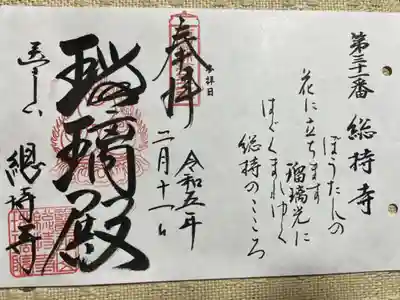 第三十一番 総持寺
ぼうたんの
花に立ちます
瑠璃光に
はぐくまれゆく
総持のこころ
参拝日
令和五年
二月十一日
奉拝
瑠璃殿
總持寺